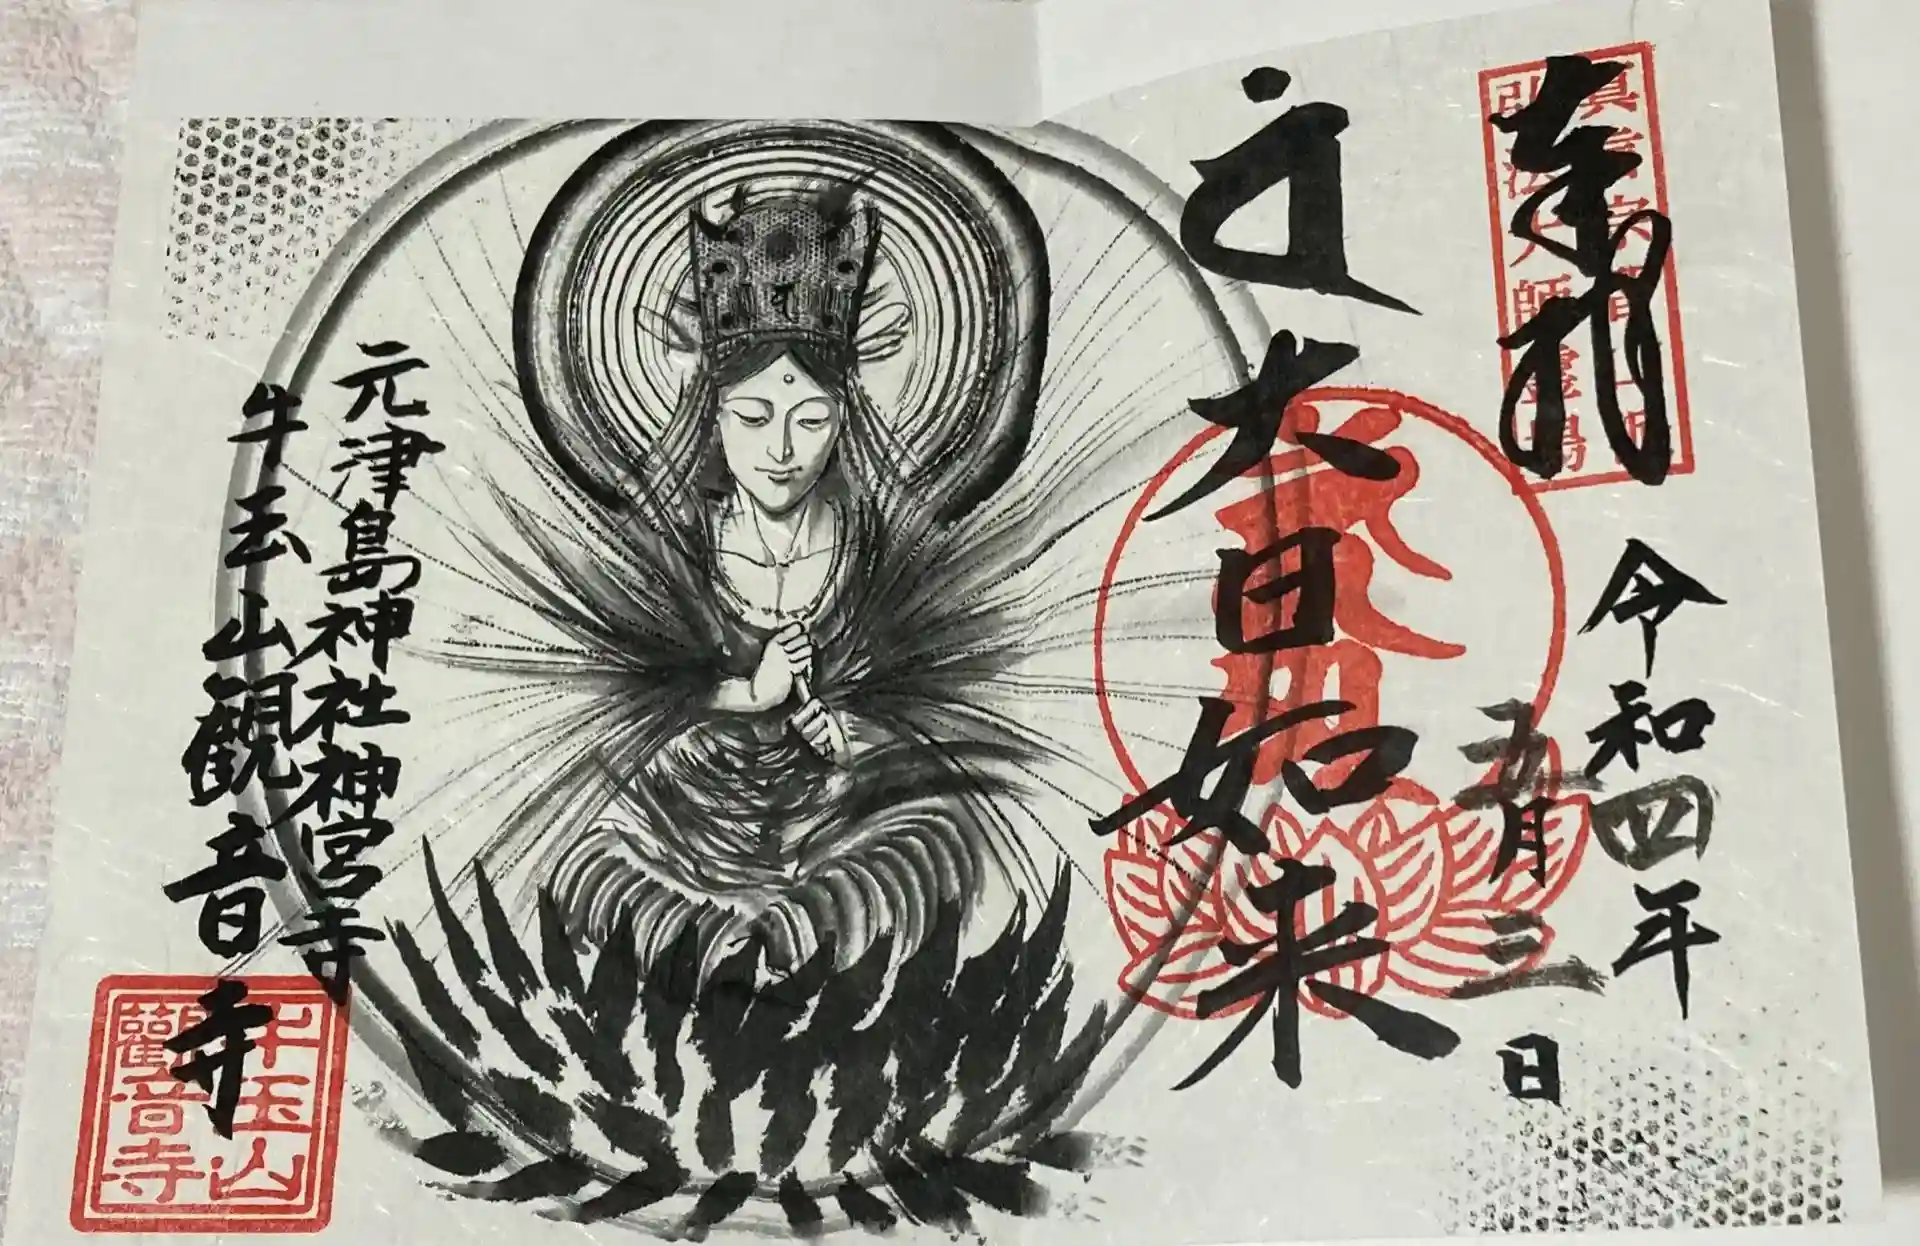 奉拝
弘法大師靈場
令和四年
五月三日
大日如来
元津島神社神宮寺
牛玉山観音寺
牛玉山
觀音寺